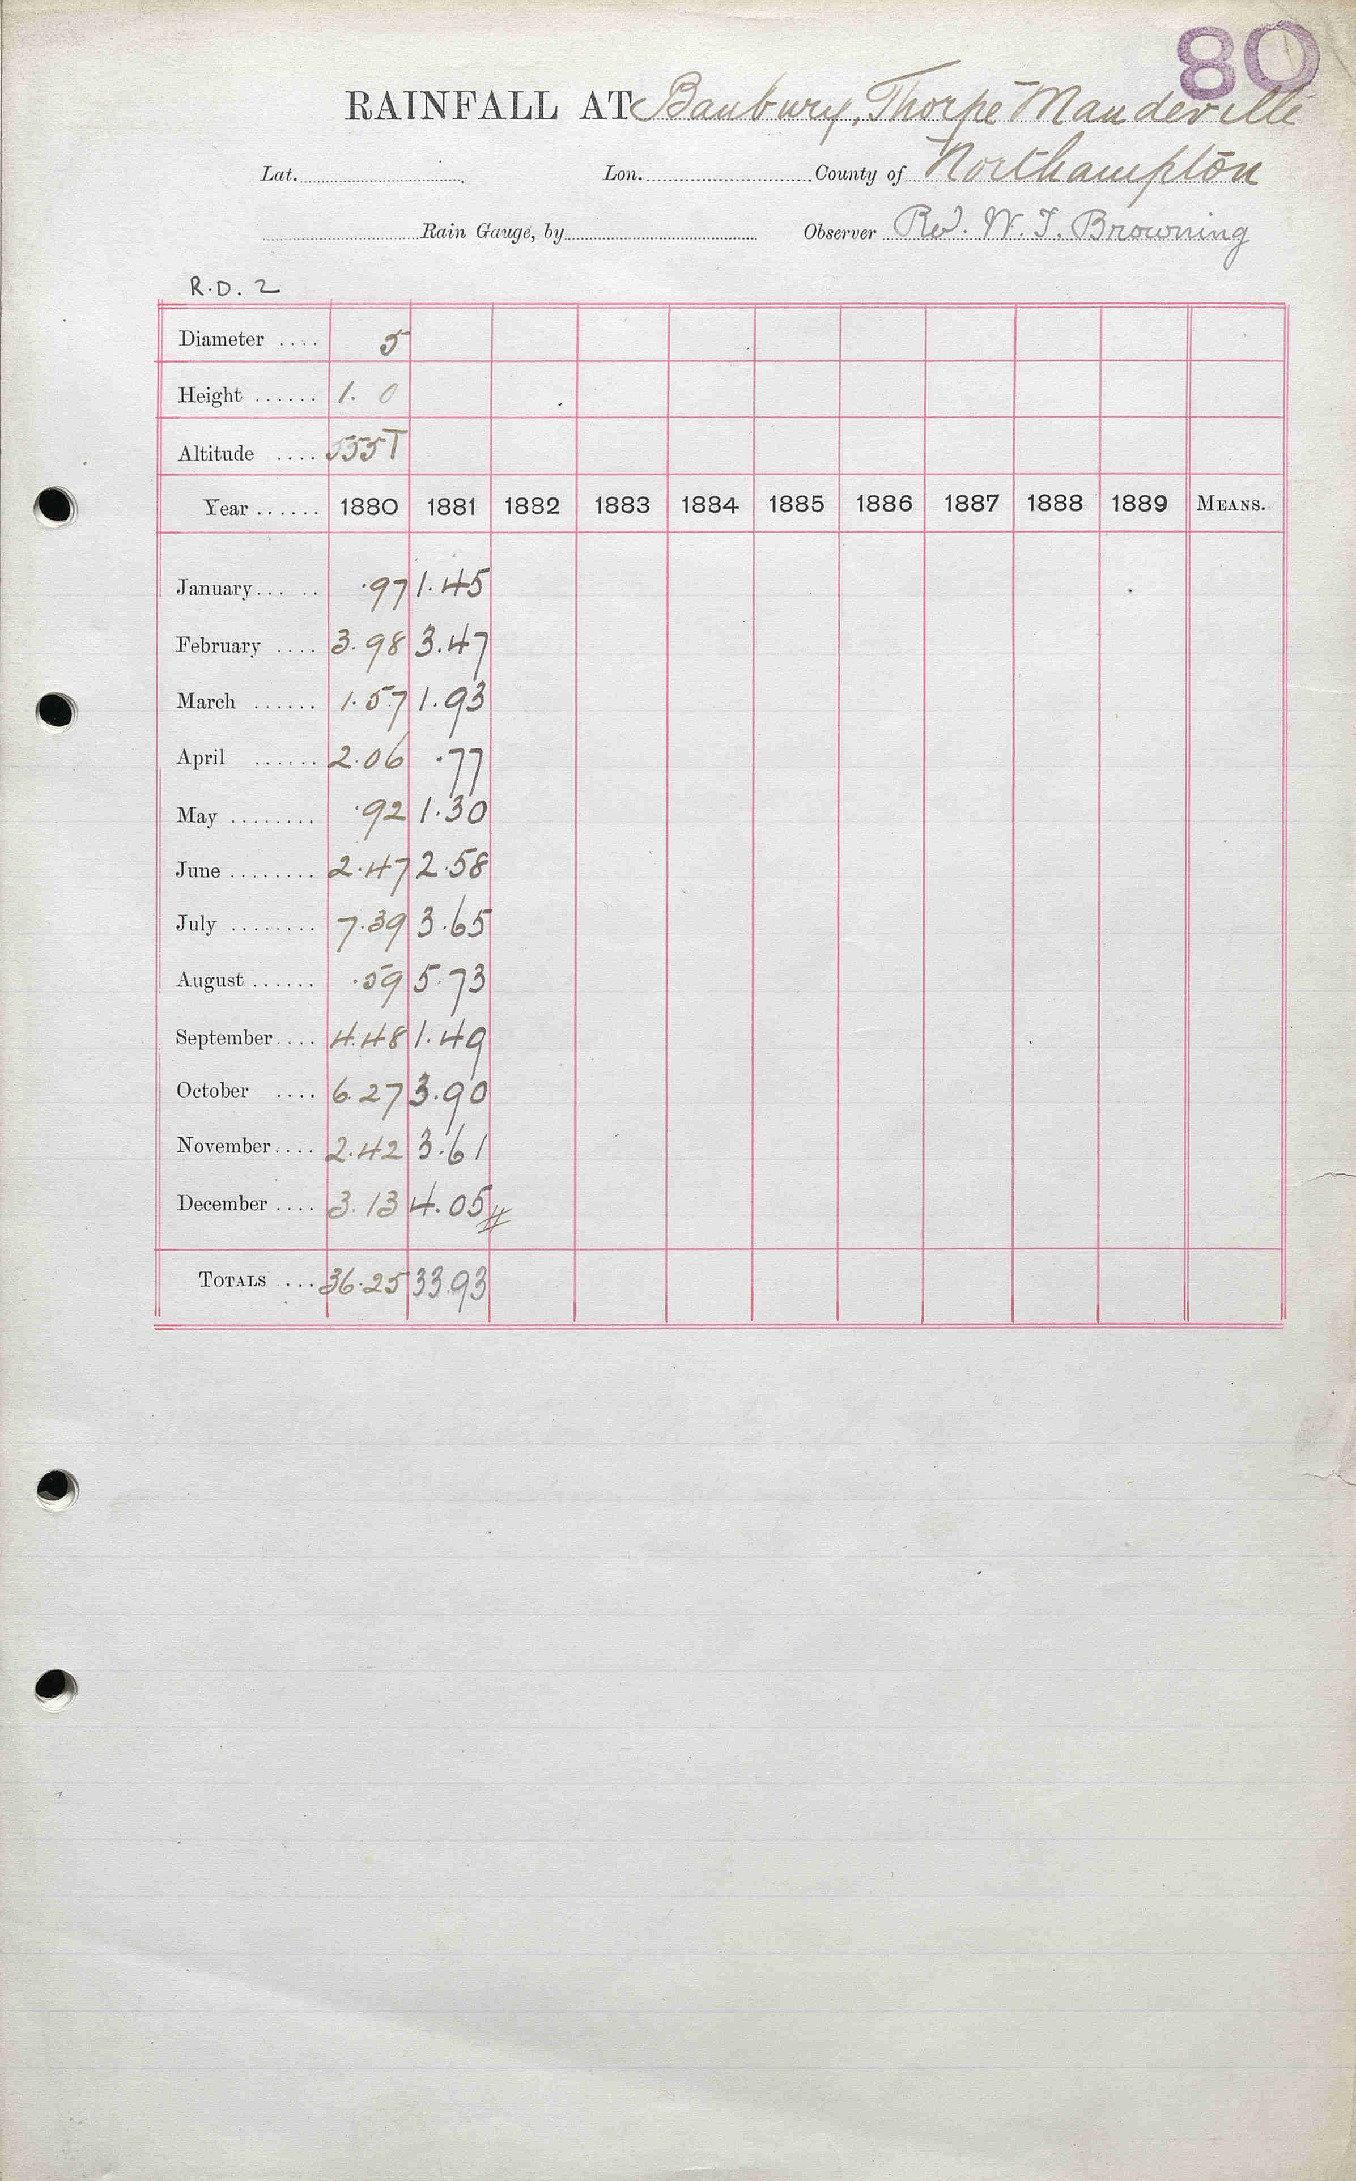 80
RAINFALL AT Banbury, Thorpe Mandeville
Lat. Lon. County of Northampton
Rain Gauge, by Observer Rev. W. T. Browning
R.D. 2
Diameter .... 5
Height ...... 1. 0
Altitude .... 555T
Year ...... 1880 1881 1882 1883 1884 1885 1886 1887 1888 1889 MEANS.
January... .. .97 1.45
February .... 3.98 3.47
March ...... 1.57 1.93
April ...... 2.06 .77
May ........ .92 1.30
June ........ 2.47 2.58
July ........ 7.39 3.65
August ...... .59 5.73
September .... 4.48 1.49
October .... 6.27 3.90
November .... 2.42 3.61
December .... 3.13 4.05
TOTALS ... 36.25 33.93